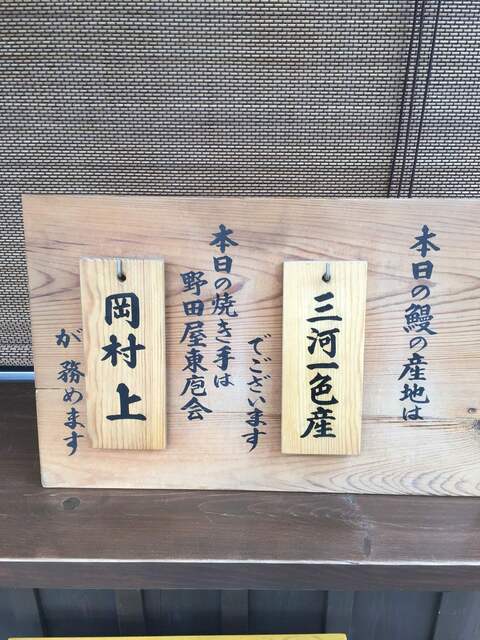 本日の鰻の産地は
三河一色産
でございます
本日の焼き手は
野田屋東庖会
岡村上
が務めます